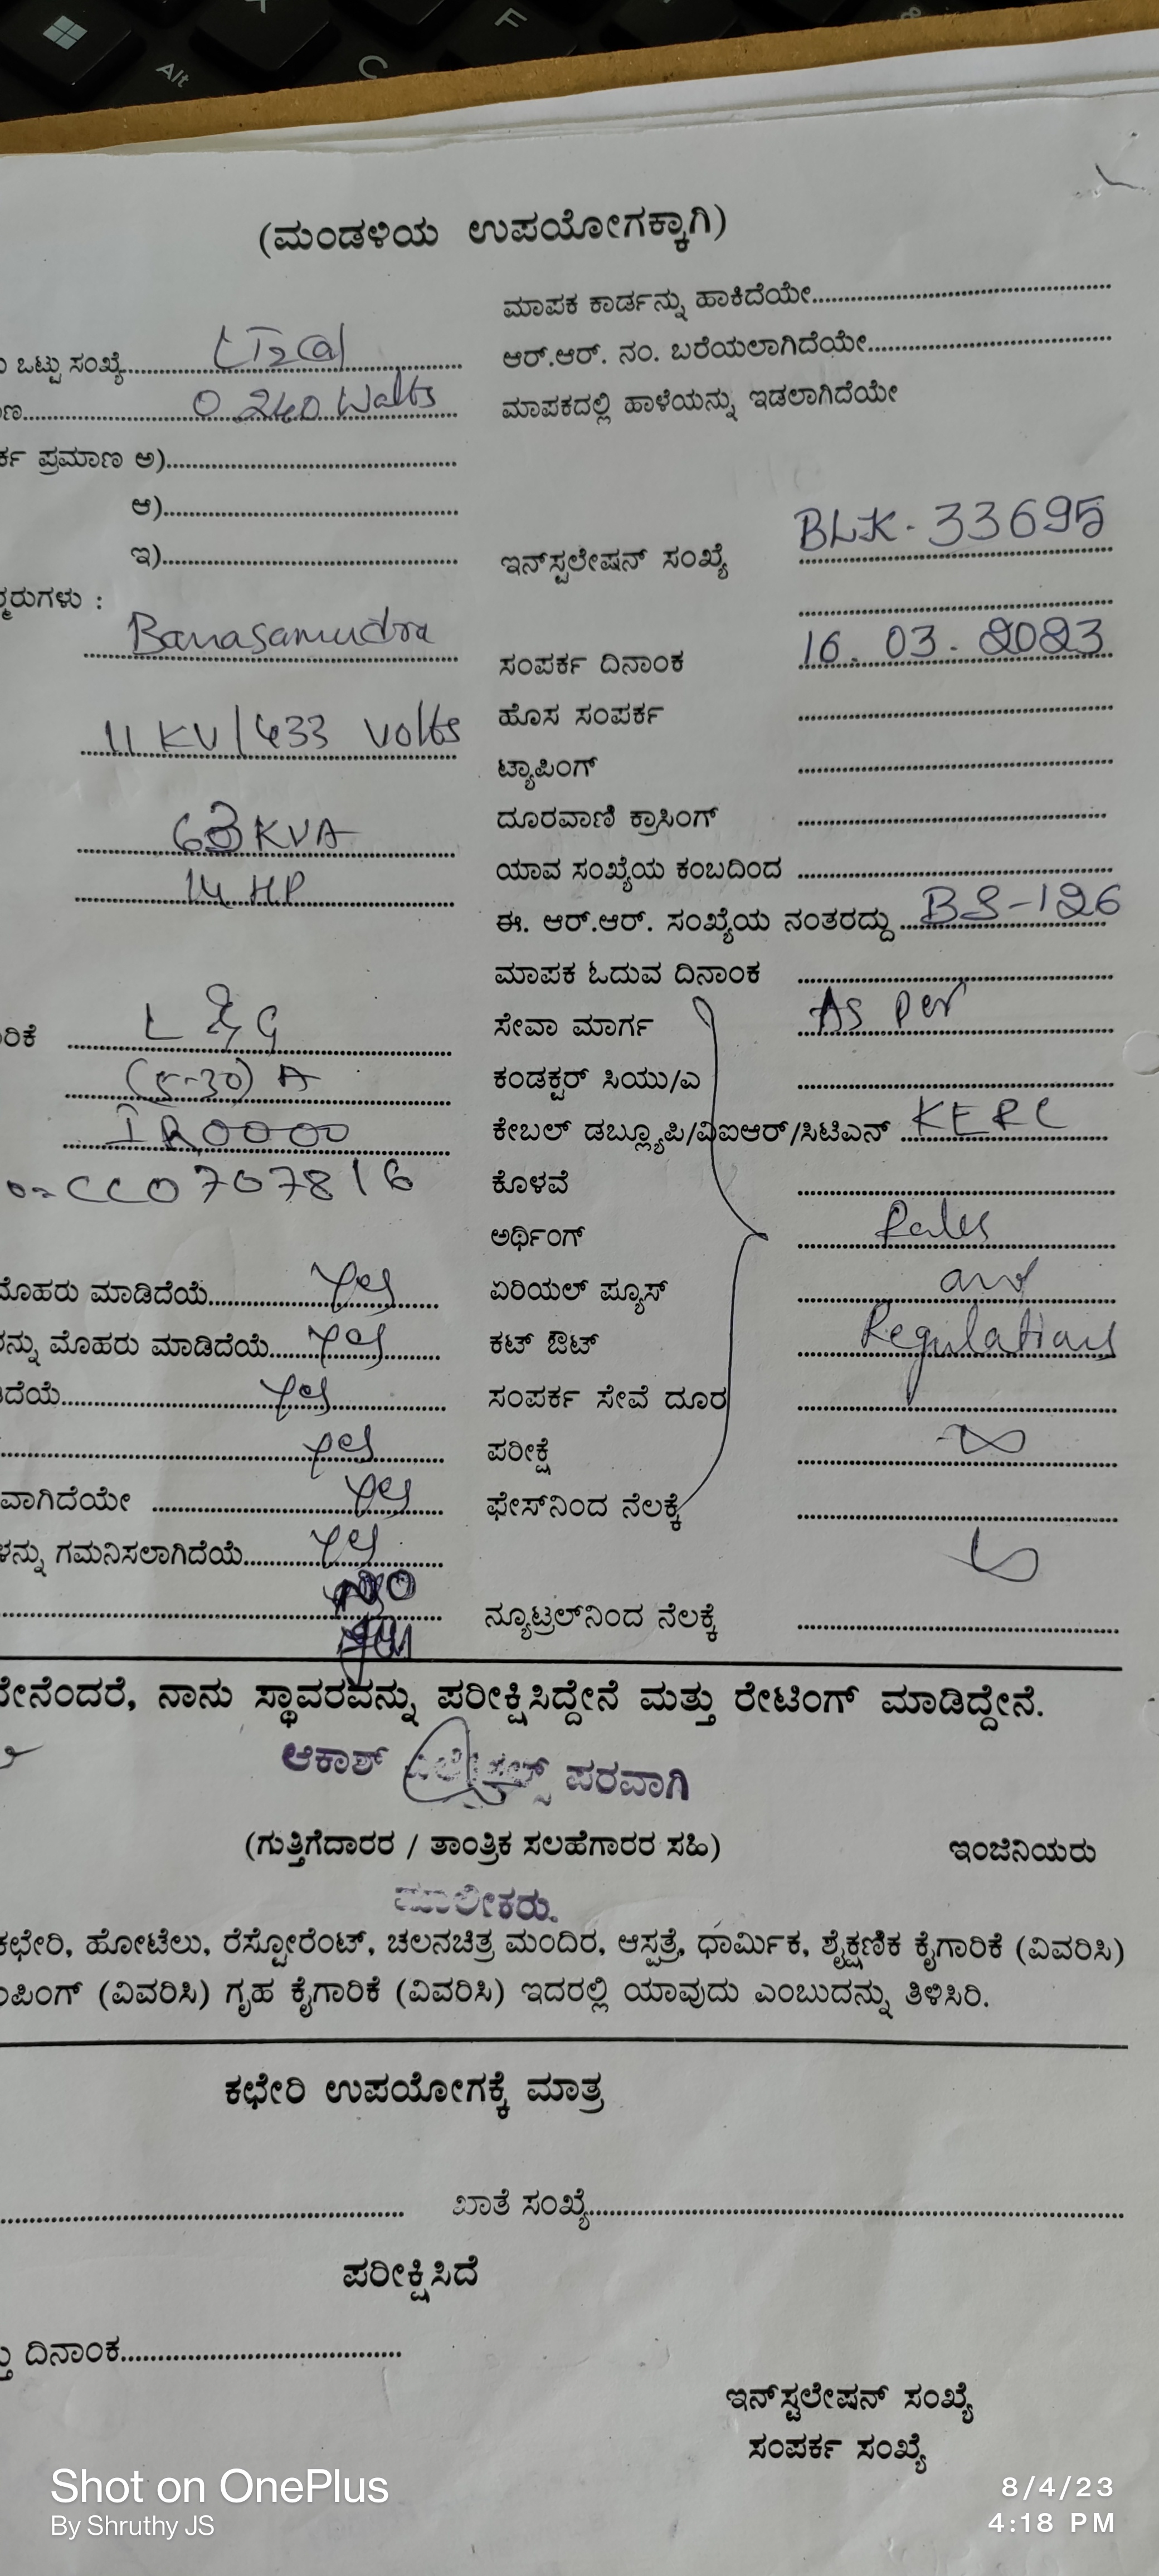 Alt
C
F
(ಮಂಡಳಿಯ ಉಪಯೋಗಕ್ಕಾಗಿ)
ಮಾಪಕ ಕಾರ್ಡನ್ನು ಹಾಕಿದೆಯೇ
ಒಟ್ಟು ಸಂಖ್ಯೆ LT2(a) ಆರ್.ಆರ್. ನಂ. ಬರೆಯಲಾಗಿದೆಯೇ
0 240 Watts ಮಾಪಕದಲ್ಲಿ ಹಾಳೆಯನ್ನು ಇಡಲಾಗಿದೆಯೇ
ಪ್ರಮಾಣ ಅ)
ಆ)
ಇ) ಇನ್‌ಸ್ಟಲೇಷನ್ ಸಂಖ್ಯೆ BLK-33695
Banasamudra ಸಂಪರ್ಕ ದಿನಾಂಕ 16.03.2023
11 KV/433 volts ಹೊಸ ಸಂಪರ್ಕ
ಟ್ಯಾಪಿಂಗ್
63 KVA ದೂರವಾಣಿ ಕ್ರಾಸಿಂಗ್
14 HP ಯಾವ ಸಂಖ್ಯೆಯ ಕಂಬದಿಂದ
ಈ. ಆರ್.ಆರ್. ಸಂಖ್ಯೆಯ ನಂತರದ್ದು BS-126
ಮಾಪಕ ಓದುವ ದಿನಾಂಕ
L & G ಸೇವಾ ಮಾರ್ಗ As per
(5-30) A ಕಂಡಕ್ಟರ್ ಸಿಯು/ಎ
IR0000 ಕೇಬಲ್ ಡಬ್ಲ್ಯೂಪಿ/ವಿಐಆರ್/ಸಿಟಿಎನ್ KERC
CC0707816 ಕೊಳವೆ
ಅರ್ಥಿಂಗ್ Rules
ಮೊಹರು ಮಾಡಿದೆಯೆ Yes ಏರಿಯಲ್ ಪ್ಯೂಸ್ and
ಮೊಹರು ಮಾಡಿದೆಯೆ Yes ಕಟ್ ಔಟ್ Regulations
Yes ಸಂಪರ್ಕ ಸೇವೆ ದೂರ
Yes ಪರೀಕ್ಷೆ
Yes ಫೇಸ್‌ನಿಂದ ನೆಲಕ್ಕೆ
ಗಮನಿಸಲಾಗಿದೆಯೆ Yes
ನ್ಯೂಟ್ರಲ್‌ನಿಂದ ನೆಲಕ್ಕೆ
ನಾನು ಸ್ಥಾವರವನ್ನು ಪರೀಕ್ಷಿಸಿದ್ದೇನೆ ಮತ್ತು ರೇಟಿಂಗ್ ಮಾಡಿದ್ದೇನೆ.
ಆಕಾಶ್ ಪರವಾಗಿ
(ಗುತ್ತಿಗೆದಾರರ / ತಾಂತ್ರಿಕ ಸಲಹೆಗಾರರ ಸಹಿ) ಇಂಜಿನಿಯರು
ಮಾಲೀಕರು.
ಕಛೇರಿ, ಹೋಟೆಲು, ರೆಸ್ಟೋರೆಂಟ್, ಚಲನಚಿತ್ರ ಮಂದಿರ, ಆಸ್ಪತ್ರೆ, ಧಾರ್ಮಿಕ, ಶೈಕ್ಷಣಿಕ ಕೈಗಾರಿಕೆ (ವಿವರಿಸಿ)
(ವಿವರಿಸಿ) ಗೃಹ ಕೈಗಾರಿಕೆ (ವಿವರಿಸಿ) ಇದರಲ್ಲಿ ಯಾವುದು ಎಂಬುದನ್ನು ತಿಳಿಸಿರಿ.
ಕಛೇರಿ ಉಪಯೋಗಕ್ಕೆ ಮಾತ್ರ
ಖಾತೆ ಸಂಖ್ಯೆ
ಪರೀಕ್ಷಿಸಿದೆ
ದಿನಾಂಕ
ಇನ್‌ಸ್ಟಲೇಷನ್ ಸಂಖ್ಯೆ
ಸಂಪರ್ಕ ಸಂಖ್ಯೆ
Shot on OnePlus
By Shruthy JS
8/4/23
4:18 PM